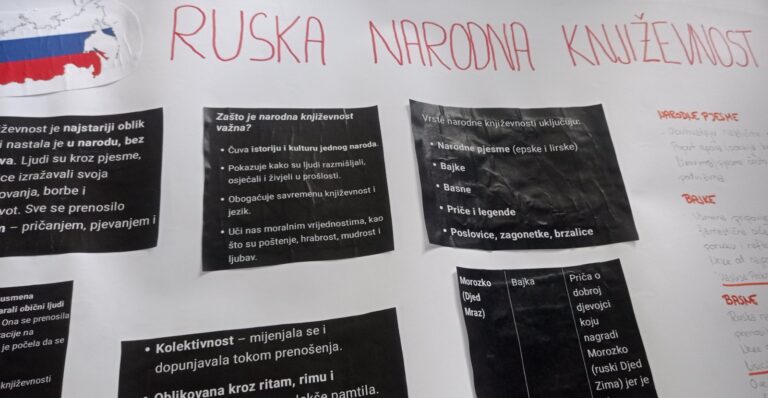 RUSKA NARODNA KNJIŽEVNOST
ževnost je najstariji oblik
i nastala je u narodu, bez
va. Ljudi su kroz pjesme,
ce izražavali svoja
ovanja, borbe i
vot. Sve se prenosilo
m – pričanjem, pjevanjem i
Zašto je narodna književnost
važna?
• Čuva istoriju i kulturu jednog naroda.
• Pokazuje kako su ljudi razmišljali,
osjećali i živjeli u prošlosti.
• Obogaćuje savremenu književnost i
jezik.
• Uči nas moralnim vrijednostima, kao
što su poštenje, hrabrost, mudrost i
ljubav.
Vrste narodne književnosti uključuju:
• Narodne pjesme (epske i lirske)
• Bajke
• Basne
• Priče i legende
• Poslovice, zagonetke, brzalice
NARODNE PJESME
BAJKE
BASNE
usmena
arali obični ljudi
Ona se prenosila
acije na
je počela da se
književnosti
• Kolektivnost – mijenjala se i
dopunjavala tokom prenošenja.
• Oblikovana kroz ritam, rimu i
lakše pamtila.
Morozko
(Djed
Mraz)
Bajka
Priča o
dobroj
djevojci
koju
nagradi
Morozko
(ruski Djed
Zima) jer je